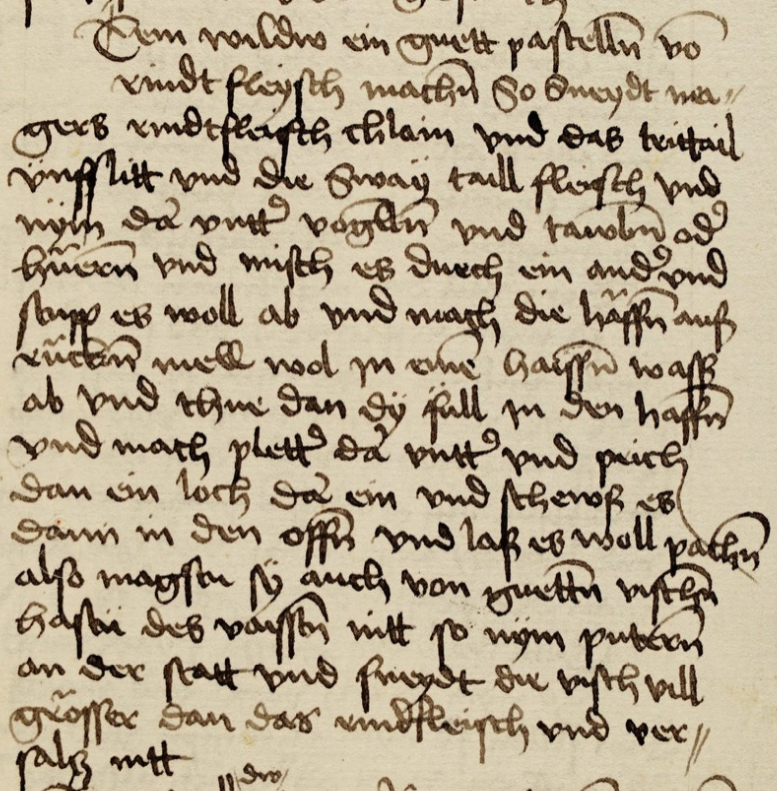 Item wildw ein guett pastelln̄ vo
rindtfleysch machn̄ So sneydt ma=
gers rindtfleisch chlain vnd das trittail
vnsslitt vnd die Sway taill fleisch vnd
nÿm da vntt' vogelln̄ vnd tawbn̄ od'
hüern̄ vnd misch es duech ein and' vnd
stupp es woll ab vnd mach die häffn̄ aus
rückn̄ mell wol jn eine haissn̄ wass
ab vnd thue dan dÿ füll jn den haffn̄
vnd mach plett' da vntt' vnd prich
dan ein loch da ein vnd schews es
dann in den offn̄ vnd las es woll pachn̄
also magstu sÿ auch von guettn̄ vischn̄
hastu des vaisstn̄ nitt so nÿm putern̄
an der statt vnd sneydt die visch vill
grösser dan das rindfleisch vnd ver=
saltz nitt
dw